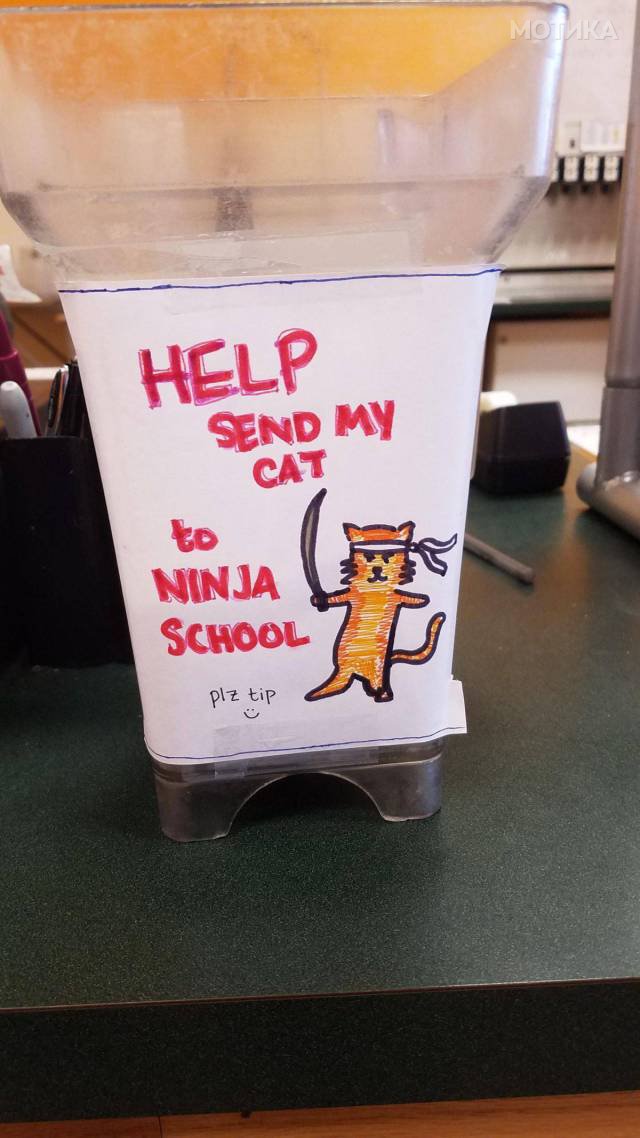 МОТИКА
HELP
SEND MY
CAT
to
NINJA
SCHOOL
plz tip